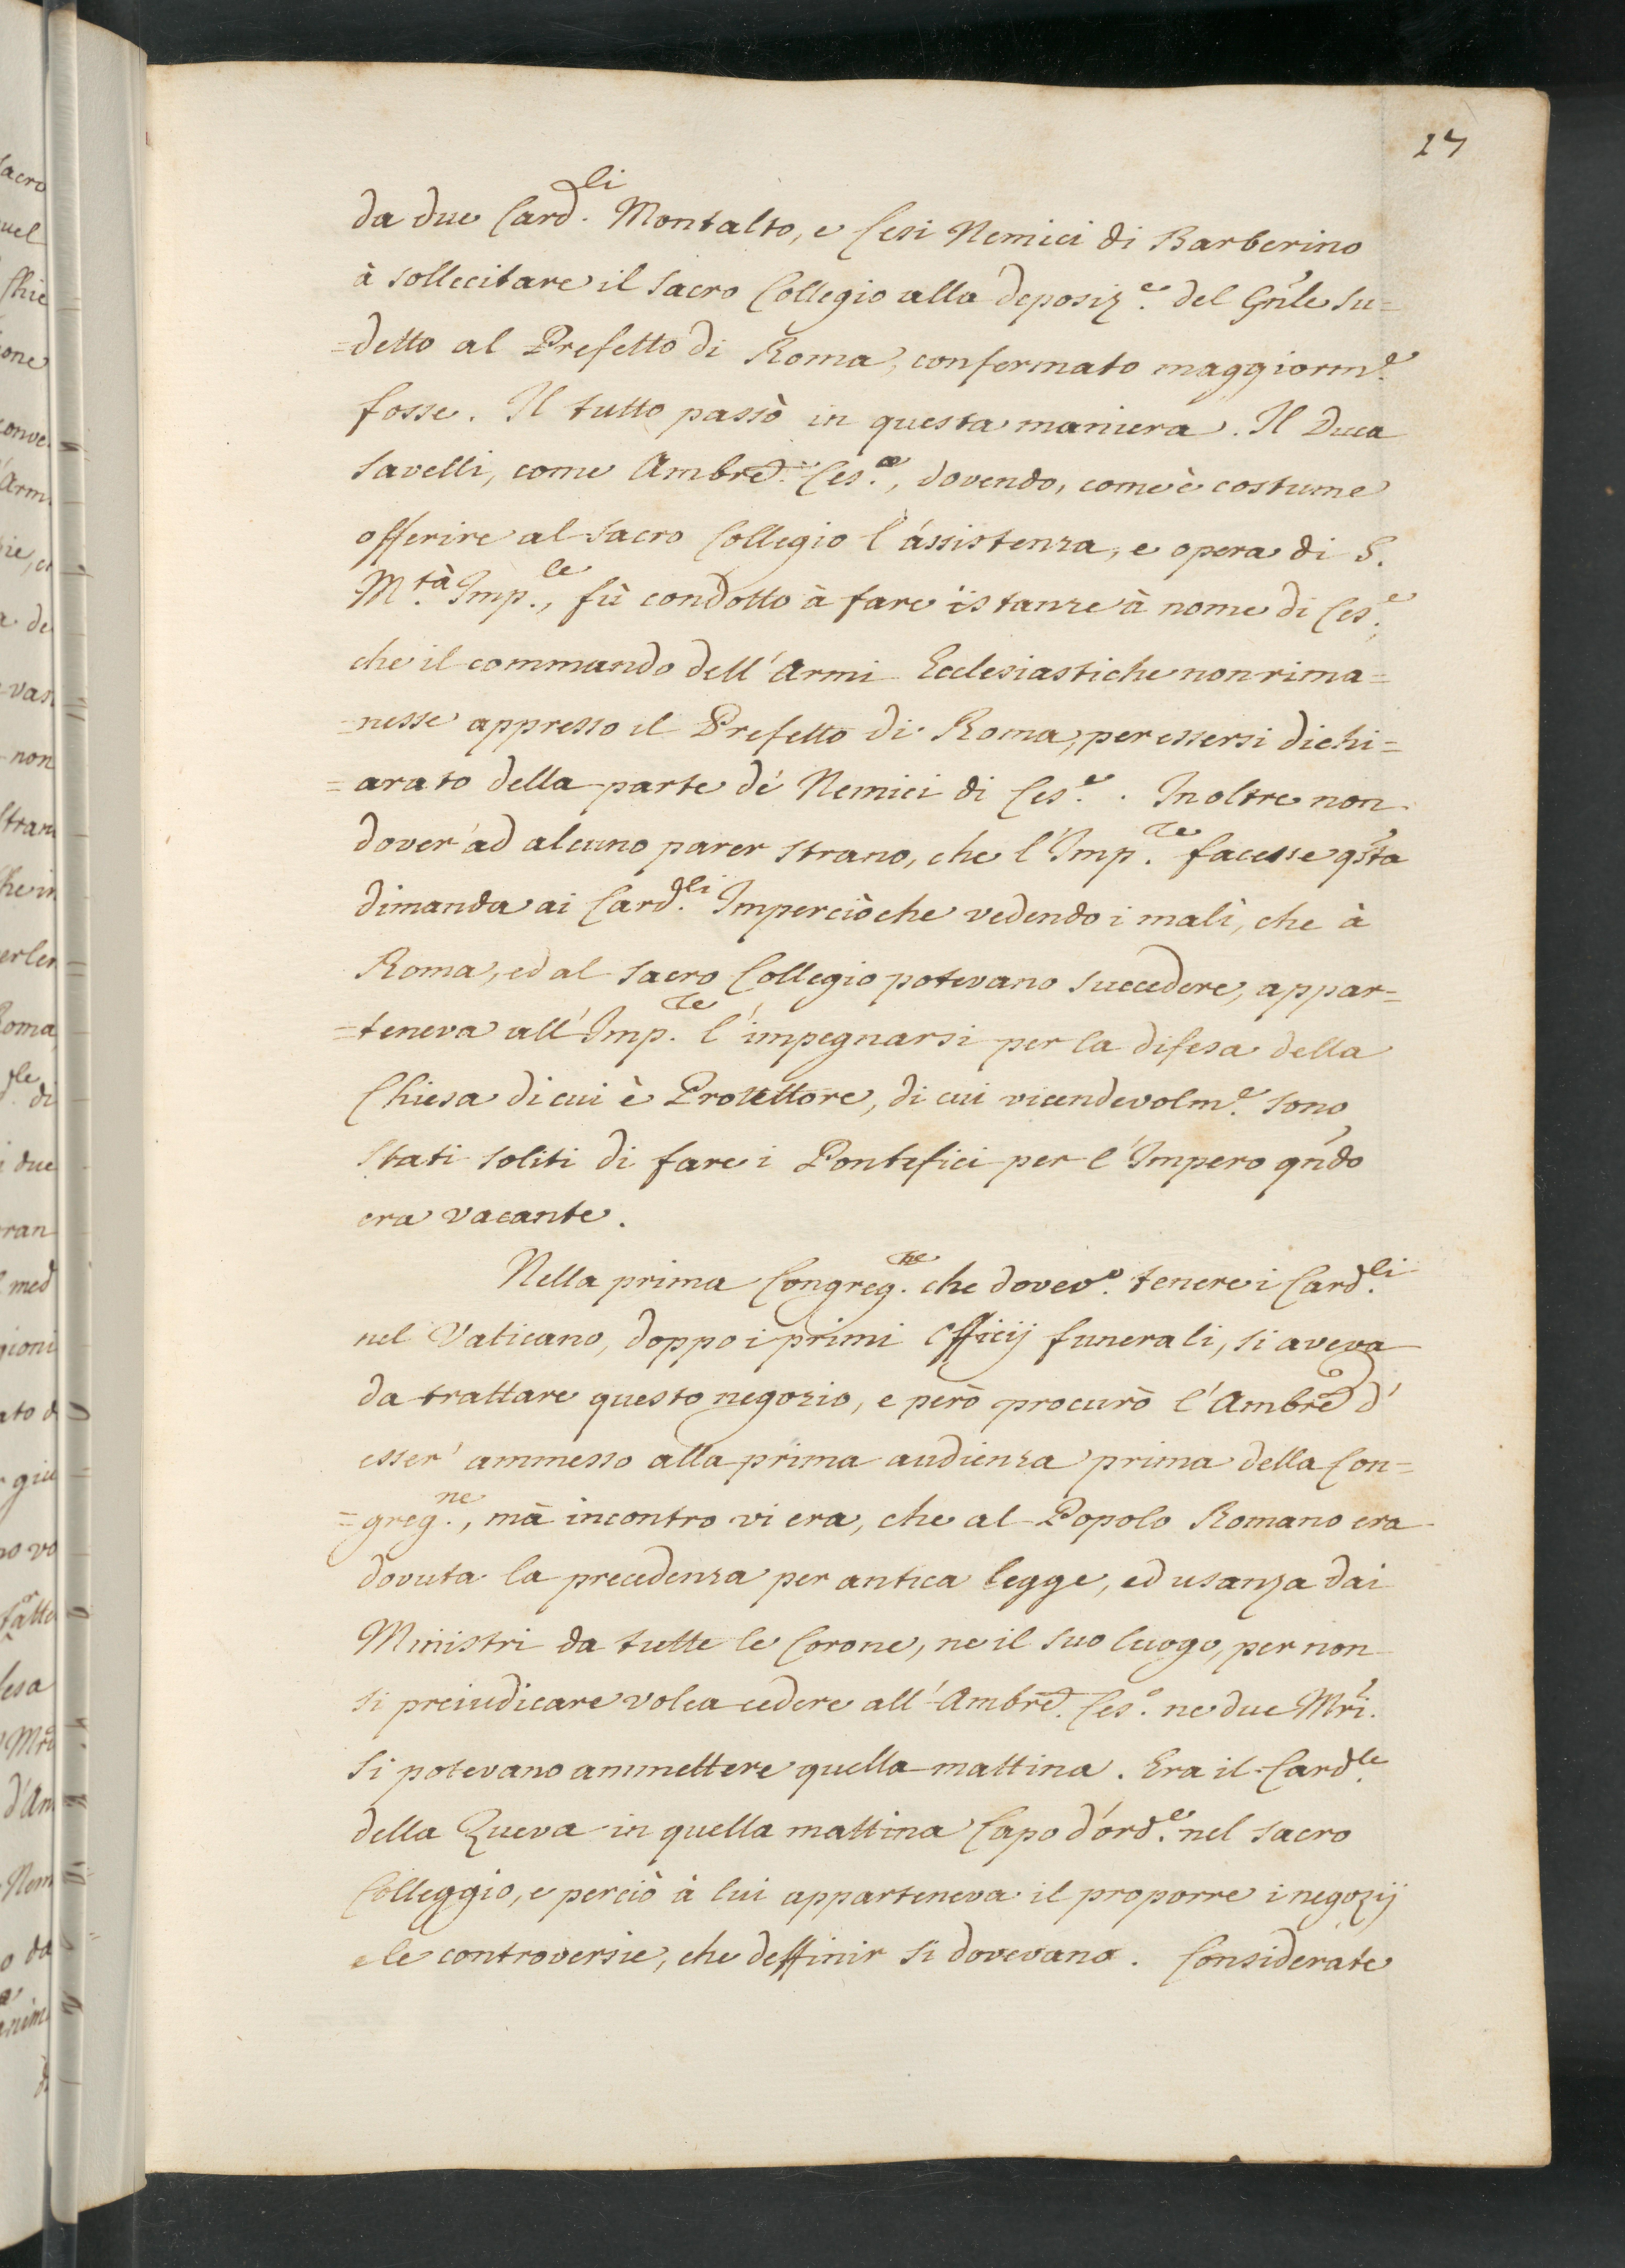 17
da due Card.li Montalto, e Cesi Nemici di Barberino
à sollecitare il Sacro Collegio alla deposiz.e del Gn̄le su=
=detto al Prefetto di Roma, confermato maggiorm.e
fosse. Il tutto passò in questa maniera. Il Duca
Savelli, come Ambrē. Ces.o, dovendo, come è costume
offerire al Sacro Collegio l'assistenza, e opera di S.
M.tà Imp.le, fù condotto à fare istanze à nome di Ces.e,
che il commando dell'Armi Ecclesiastiche non rima=
=nesse appresso il Prefetto di Roma, per essersi dichi=
=arato della parte de' Nemici di Ces.e. Inoltre non
dover' ad alcuno parer strano, che l'Imp.re facesse qs̄ta
dimanda ai Card.li Imperciòche vedendo i mali, che à
Roma, ed al Sacro Collegio potevano succedere, appar=
=teneva all'Imp.re l'impegnarsi per la difesa della
Chiesa di cui è Protettore, di cui vicendevolm.e sono
stati soliti di fare i Pontefici per l'Impero qn̄do
era vacante.
Nella prima Congreg.ne che dovev.o tenere i Card.li
nel Vaticano, doppo i primi Officij funerali, si aveva
da trattare questo negozio, e però procurò l'Ambrē d'
esser' ammesso alla prima audienza prima della Con=
=greg.ne, mà incontro vi era, che al Popolo Romano era
dovuta la precedenza per antica legge, ed usanza dai
Ministri da tutte le Corone, ne il suo luogo, per non
si preiudicare volea cedere all'Ambrē. Ces.o ne due Mr̄i.
si potevano ammettere quella mattina. Era il Card.le
della Queva in quella mattina Capo d'ord.e nel Sacro
Colleggio, e perciò à lui apparteneva il proporre i negozij
e le controversie, che deffinir si dovevano. Considerate